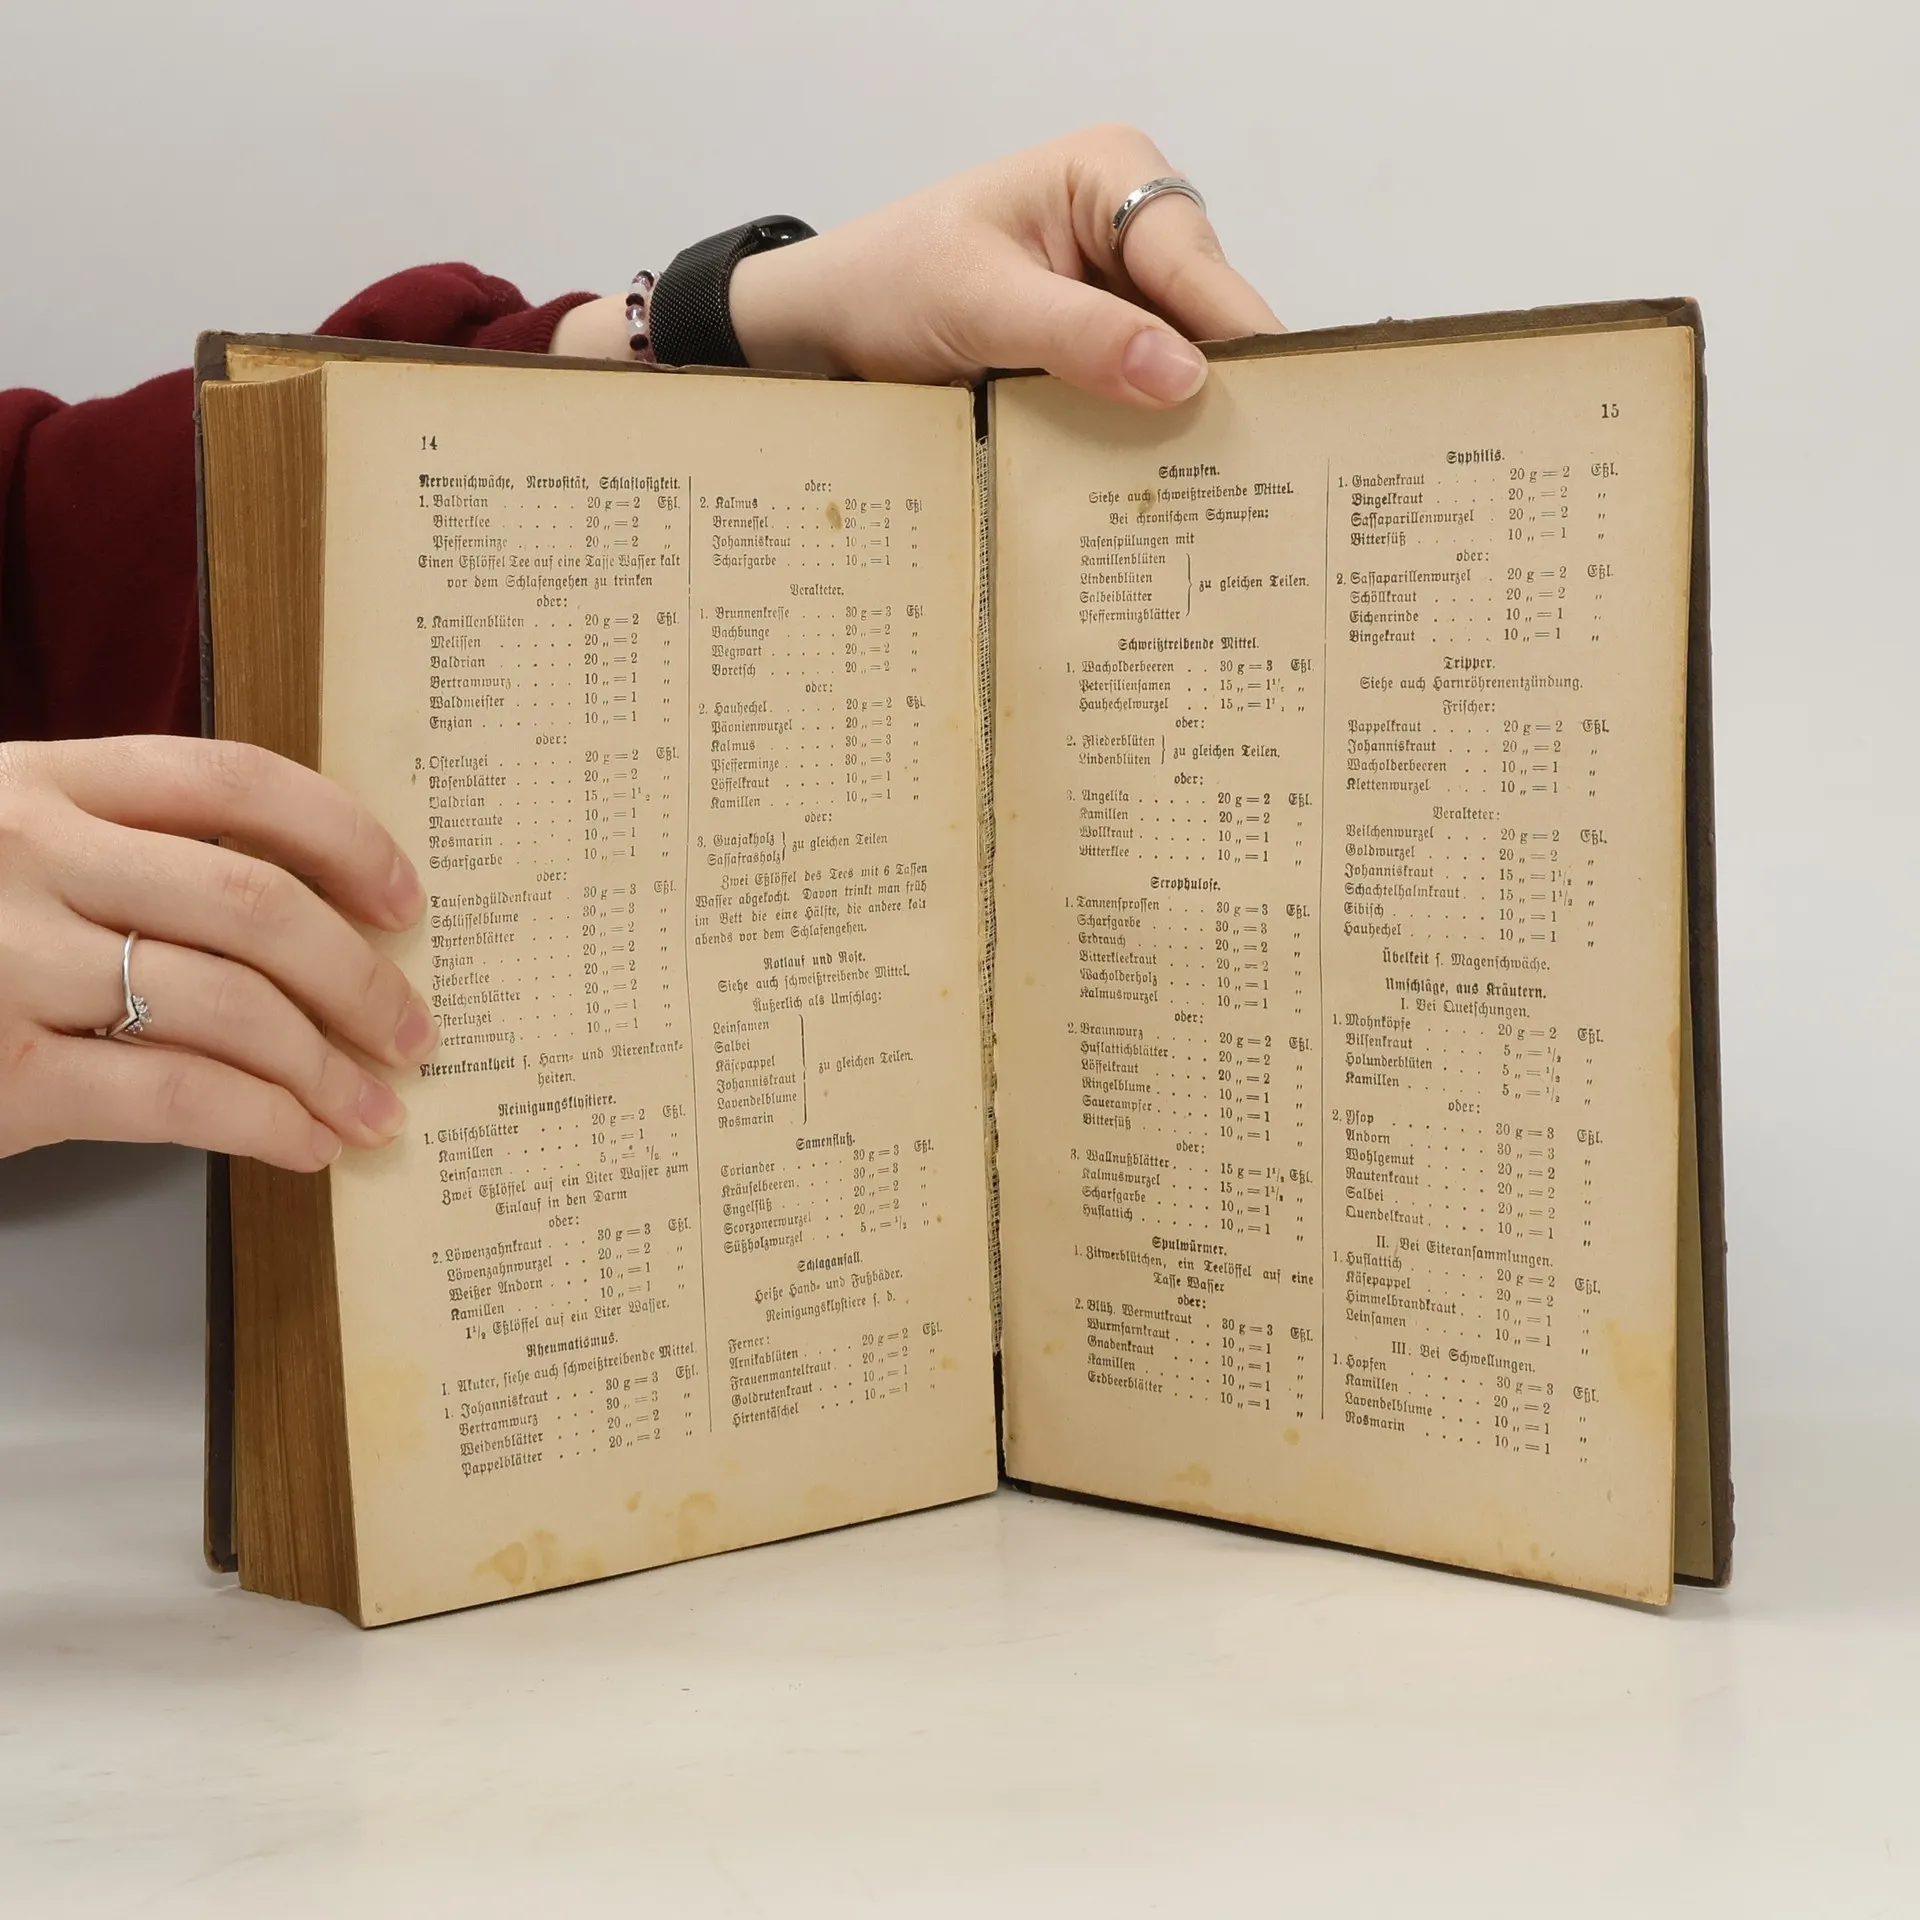 14
Nervenschwäche, Nervosität, Schlaflosigkeit.
1. Baldrian . . . . . 20 g = 2 Eßl.
Bitterklee . . . . . 20 „ = 2 „
Pfefferminze . . . . 20 „ = 2 „
Einen Eßlöffel Tee auf eine Tasse Wasser kalt
vor dem Schlafengehen zu trinken
oder:
2. Kamillenblüten . . . 20 g = 2 Eßl.
Melissen . . . . . 20 „ = 2 „
Baldrian . . . . . 20 „ = 2 „
Bertramwurz . . . . 10 „ = 1 „
Waldmeister . . . . 10 „ = 1 „
Enzian . . . . . . 10 „ = 1 „
oder:
3. Osterluzei . . . . . 20 g = 2 Eßl.
Rosenblätter . . . . 20 „ = 2 „
Baldrian . . . . . 15 „ = 1½ „
Mauerraute . . . . 10 „ = 1 „
Rosmarin . . . . . 10 „ = 1 „
Scharfgarbe . . . . 10 „ = 1 „
oder:
Tausendgüldenkraut . 30 g = 3 Eßl.
Schlüsselblume . . . 30 „ = 3 „
Myrtenblätter . . . 20 „ = 2 „
Enzian . . . . . . 20 „ = 2 „
Fieberklee . . . . . 20 „ = 2 „
Veilchenblätter . . . 20 „ = 2 „
Osterluzei . . . . . 10 „ = 1 „
ertramwurz . . . . 10 „ = 1 „
Nierenkrankheit s. Harn- und Nierenkrank-
heiten.
Reinigungsklystiere.
1. Eibischblätter . . . 20 g = 2 Eßl.
Kamillen . . . . . 10 „ = 1 „
Leinsamen . . . . . 5 „ = ½ „
Zwei Eßlöffel auf ein Liter Wasser zum
Einlauf in den Darm
oder:
2. Löwenzahnkraut . . . 30 g = 3 Eßl.
Löwenzahnwurzel . . 20 „ = 2 „
Weißer Andorn . . . 10 „ = 1 „
Kamillen . . . . . 10 „ = 1 „
1½ Eßlöffel auf ein Liter Wasser.
Rheumatismus.
I. Akuter, siehe auch schweißtreibende Mittel.
1. Johanniskraut . . . 30 g = 3 Eßl.
Bertramwurz . . . 30 „ = 3 „
Weidenblätter . . . 20 „ = 2 „
Pappelblätter . . . 20 „ = 2 „
oder:
2. Kalmus . . . . . 20 g = 2 Eßl
Brennessel . . . . . 20 „ = 2 „
Johanniskraut . . . 10 „ = 1 „
Scharfgarbe . . . . 10 „ = 1 „
Veralteter.
1. Brunnenkresse . . . 30 g = 3 Eßl
Bachbunge . . . . 20 „ = 2 „
Wegwart . . . . . 20 „ = 2 „
Boretsch . . . . . 20 „ = 2 „
oder:
2. Hauhechel . . . . . 20 g = 2 Eßl.
Päonienwurzel . . . 20 „ = 2 „
Kalmus . . . . . 30 „ = 3 „
Pfefferminze . . . . 30 „ = 3 „
Löffelkraut . . . . 10 „ = 1 „
Kamillen . . . . . 10 „ = 1 „
oder:
3. Guajakholz } zu gleichen Teilen
Sassafrasholz
Zwei Eßlöffel des Tees mit 6 Tassen
Wasser abgekocht. Davon trinkt man früh
im Bett die eine Hälfte, die andere kalt
abends vor dem Schlafengehen.
Rotlauf und Rose.
Siehe auch schweißtreibende Mittel.
Äußerlich als Umschlag:
Leinsamen
Salbei
Käsepappel
Johanniskraut } zu gleichen Teilen.
Lavendelblume
Rosmarin
Samenfluß.
Coriander . . . . . 30 g = 3 Eßl.
Kräuselbeeren . . . . 30 „ = 3 „
Engelsüß . . . . . 20 „ = 2 „
Scorzonerwurzel . . 20 „ = 2 „
Süßholzwurzel . . . 5 „ = ½ „
Schlaganfall.
Heiße Hand- und Fußbäder.
Reinigungsklystiere s. d.
Ferner:
Arnikablüten . . . . 20 g = 2 Eßl.
Frauenmantelkraut . . 20 „ = 2 „
Goldrutenkraut . . . 10 „ = 1 „
Hirtentäschel . . . 10 „ = 1 „
15
Schnupfen.
Siehe auch schweißtreibende Mittel.
Bei chronischem Schnupfen:
Nasenspülungen mit
Kamillenblüten
Lindenblüten } zu gleichen Teilen.
Salbeiblätter
Pfefferminzblätter
Schweißtreibende Mittel.
1. Wacholderbeeren . . 30 g = 3 Eßl.
Petersiliensamen . . 15 „ = 1½ „
Hauhechelwurzel . . 15 „ = 1½ „
oder:
2. Fliederblüten } zu gleichen Teilen.
Lindenblüten
oder:
3. Angelika . . . . . 20 g = 2 Eßl.
Kamillen . . . . . 20 „ = 2 „
Wollkraut . . . . . 10 „ = 1 „
Bitterklee . . . . . 10 „ = 1 „
Scrophulose.
1. Tannensprossen . . . 30 g = 3 Eßl.
Scharfgarbe . . . . 30 „ = 3 „
Erdrauch . . . . . 20 „ = 2 „
Bitterkleekraut . . . 20 „ = 2 „
Wacholderholz . . . 10 „ = 1 „
Kalmuswurzel . . . 10 „ = 1 „
oder:
2. Braunwurz . . . . 20 g = 2 Eßl.
Huflattichblätter . . . 20 „ = 2 „
Löffelkraut . . . . 20 „ = 2 „
Ringelblume . . . . 10 „ = 1 „
Sauerampfer . . . . 10 „ = 1 „
Bittersüß . . . . . 10 „ = 1 „
oder:
3. Wallnußblätter . . . 15 g = 1½ Eßl.
Kalmuswurzel . . . 15 „ = 1½ „
Scharfgarbe . . . . 10 „ = 1 „
Huflattich . . . . . 10 „ = 1 „
Spulwürmer.
1. Zitwerblütchen, ein Teelöffel auf eine
Tasse Wasser
oder:
2. Blüh. Wermutkraut . 30 g = 3 Eßl.
Wurmfarnkraut . . . 10 „ = 1 „
Gnadenkraut . . . 10 „ = 1 „
Kamillen . . . . . 10 „ = 1 „
Erdbeerblätter . . . 10 „ = 1 „
Syphilis.
1. Gnadenkraut . . . . 20 g = 2 Eßl.
Bingelkraut . . . . 20 „ = 2 „
Sassaparillenwurzel . 20 „ = 2 „
Bittersüß . . . . . 10 „ = 1 „
oder:
2. Sassaparillenwurzel . 20 g = 2 Eßl.
Schöllkraut . . . . 20 „ = 2 „
Eichenrinde . . . . 10 „ = 1 „
Bingekraut . . . . 10 „ = 1 „
Tripper.
Siehe auch Harnröhrenentzündung.
Frischer:
Pappelkraut . . . . 20 g = 2 Eßl.
Johanniskraut . . . 20 „ = 2 „
Wacholderbeeren . . 10 „ = 1 „
Klettenwurzel . . . 10 „ = 1 „
Veralteter:
Veilchenwurzel . . . 20 g = 2 Eßl.
Goldwurzel . . . . 20 „ = 2 „
Johanniskraut . . . 15 „ = 1½ „
Schachtelhalmkraut . . 15 „ = 1½ „
Eibisch . . . . . . 10 „ = 1 „
Hauhechel . . . . . 10 „ = 1 „
Übelkeit s. Magenschwäche.
Umschläge, aus Kräutern.
I. Bei Quetschungen.
1. Mohnköpfe . . . . 20 g = 2 Eßl.
Bilsenkraut . . . . 5 „ = ½ „
Holunderblüten . . . 5 „ = ½ „
Kamillen . . . . . 5 „ = ½ „
oder:
2. Ysop . . . . . . 30 g = 3 Eßl.
Andorn . . . . . 30 „ = 3 „
Wohlgemut . . . . 20 „ = 2 „
Rautenkraut . . . . 20 „ = 2 „
Salbei . . . . . . 20 „ = 2 „
Quendelkraut . . . . 10 „ = 1 „
II. Bei Eiteransammlungen.
1. Huflattich . . . . . 20 g = 2 Eßl.
Käsepappel . . . . 20 „ = 2 „
Himmelbrandkraut . . 10 „ = 1 „
Leinsamen . . . . 10 „ = 1 „
III. Bei Schwellungen.
1. Hopfen . . . . . 30 g = 3 Eßl.
Kamillen . . . . . 20 „ = 2 „
Lavendelblume . . . 10 „ = 1 „
Rosmarin . . . . 10 „ = 1 „